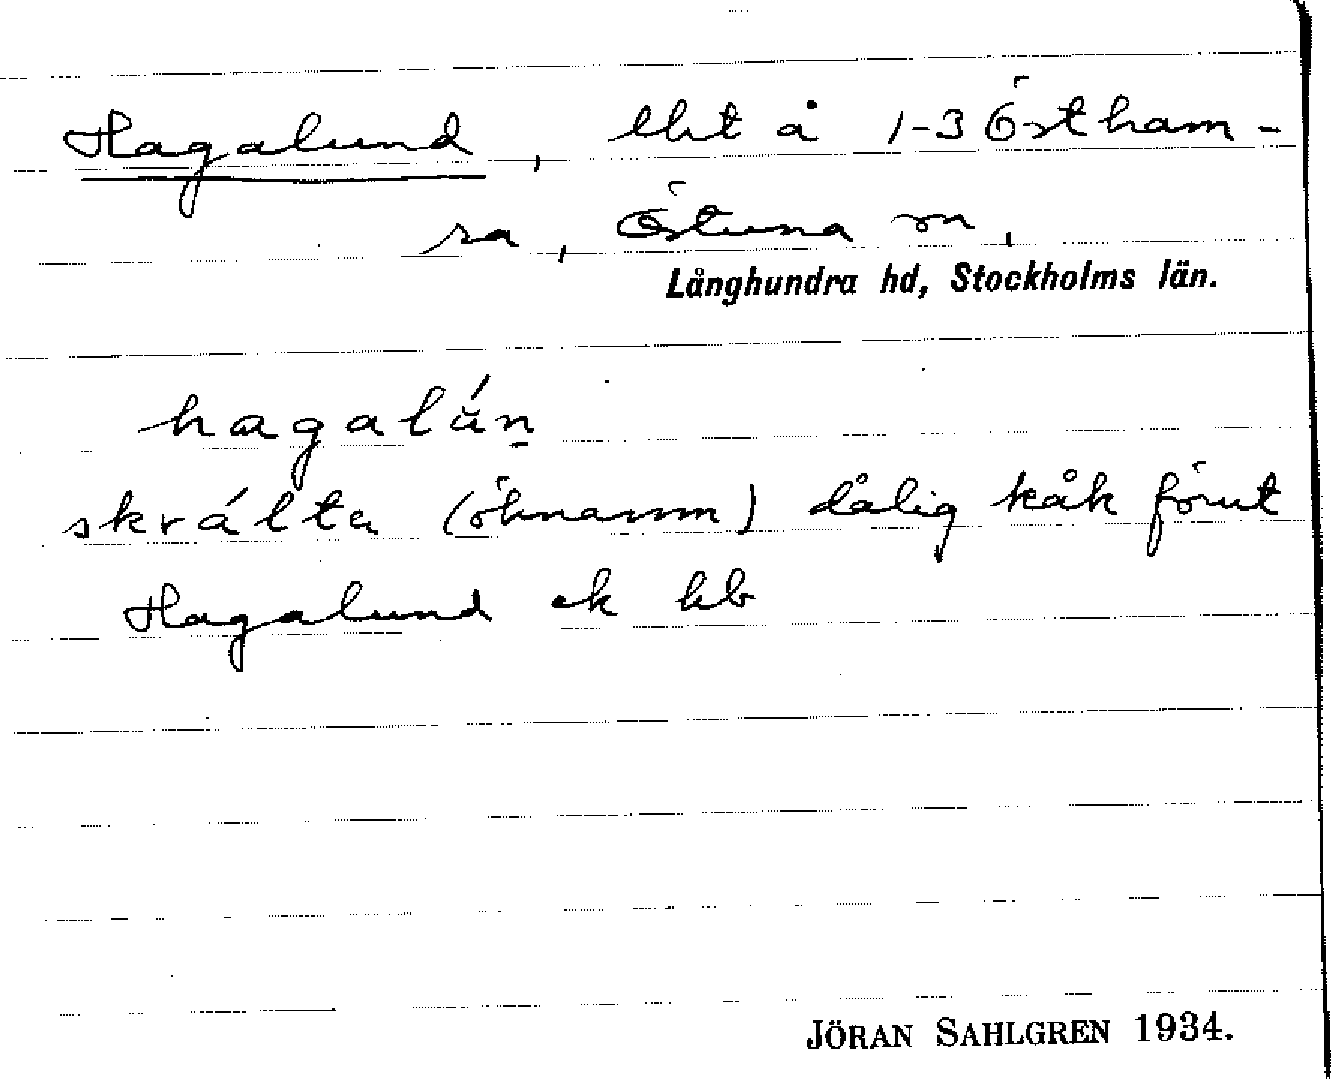 Hagalund, lht å 1-3 Östham-
sa, Östuna sn,
Långhundra hd, Stockholms län.
hagalún
skrálta (öknamn) dålig kåk förut
Hagalund ek hb
JÖRAN SAHLGREN 1934.